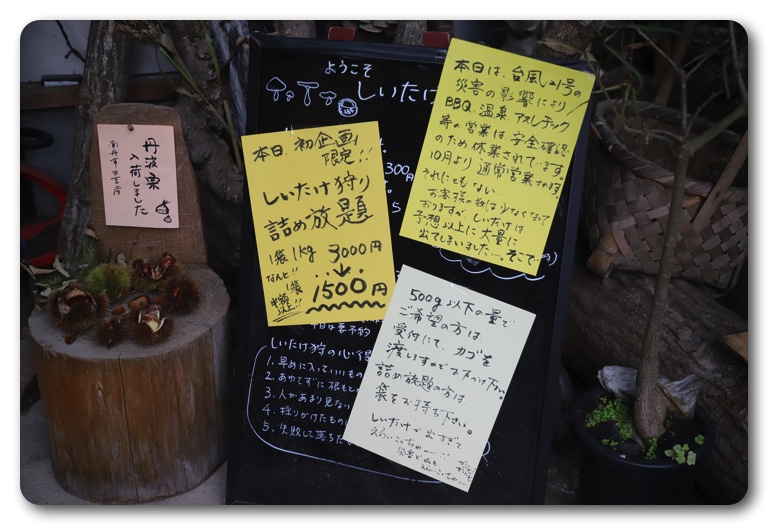 丹波栗
入荷しました
ようこそ
しいたけ
本日 初企画
限定!!
しいたけ狩り
詰め放題
1袋1kg 3000円
なんと!! 1袋 1500円
半額
以上!!
300円
本日は、台風21号の
災害の影響により
BBQ 温泉 アスレチック
等の営業は安全確認
のため休業されています。
10月より通常営業されます。
それにともない
お客様の数は少なくなって
おりますが、しいたけは
予想以上に大量に
出てしまいました…。そこで…
500g以下の量で
ご希望の方は、
受付にて、カゴを
渡しますので
詰め放題の方は
袋をお持ち下さい。
しいたけが出すぎて
えらいこっちゃー!!
災害で山も
えらいこっちゃー
しいたけ狩の心得
1. 早めに入っていいもの
2. あわてずに根もと
3. 人があまり見ない
4. 採りかけたもの
5. 失敗して落ちた